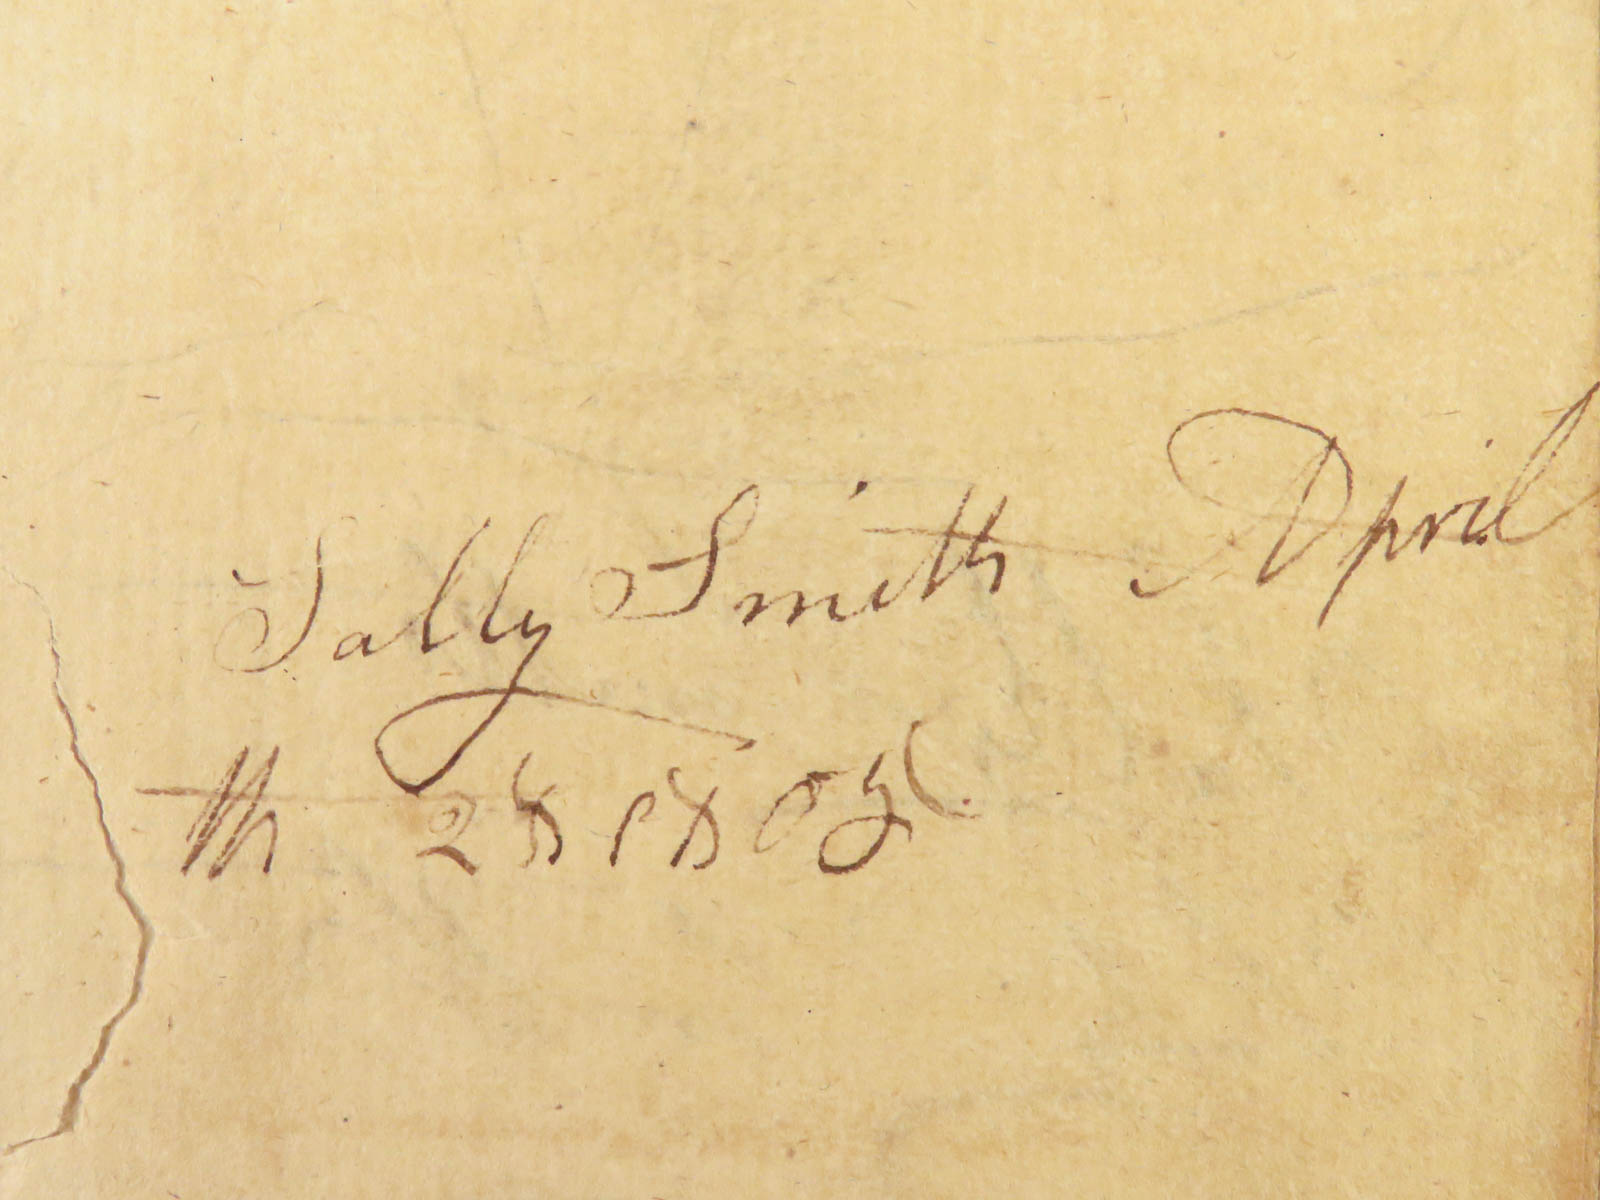 Sally Smith April
th 28 1805